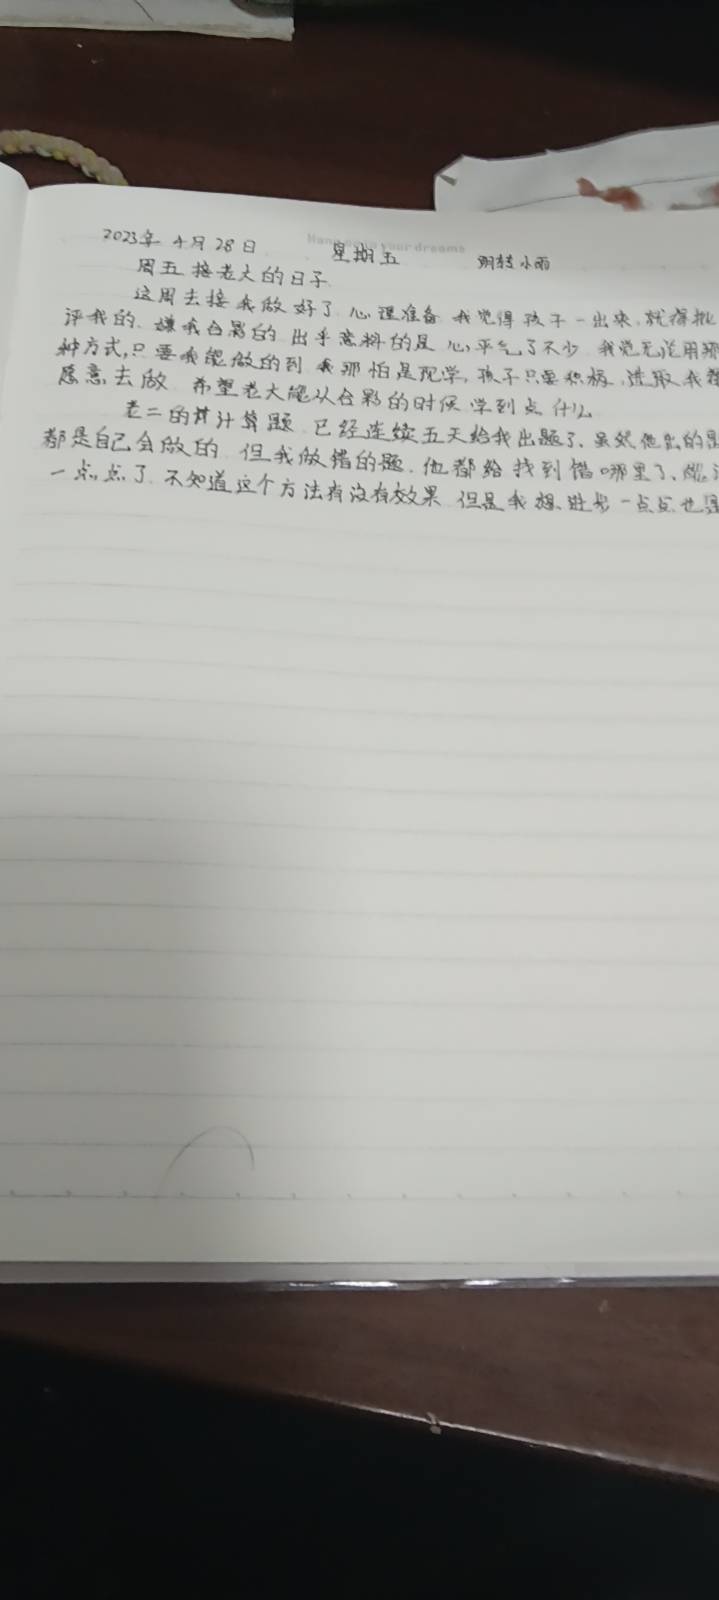 Hang on to your dreams
2023年 4月 28日 星期五 阴转小雨
周五接老大的日子
这周去接我做好了心理准备 我觉得孩子一出来,就得批
评我的 嫌我台影的 出乎意料的是 心平气了不少 我觉无论用那
种方式,只要我能做的到 我那怕是现学,孩子只要积极,进取 我
愿意去做 希望老大能从合影的时候学到点什么
老二的计算题 已经连续五天给我出题了、虽然他出的
都是自己会做的 但我做错的题 他都给找到错哪里了、
一点点了 不知道这个方法有没有效果 但是我想、进步一点点也是